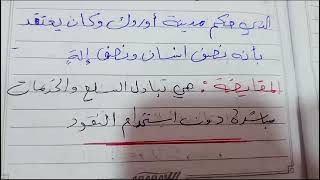 الذي حكم مدينة أوروك وكان يعتقد
بأنه نصف انسان ونصف إله
المقايضة : هي تبادل السلع والخدمات
مباشرة دون استخدام النقود